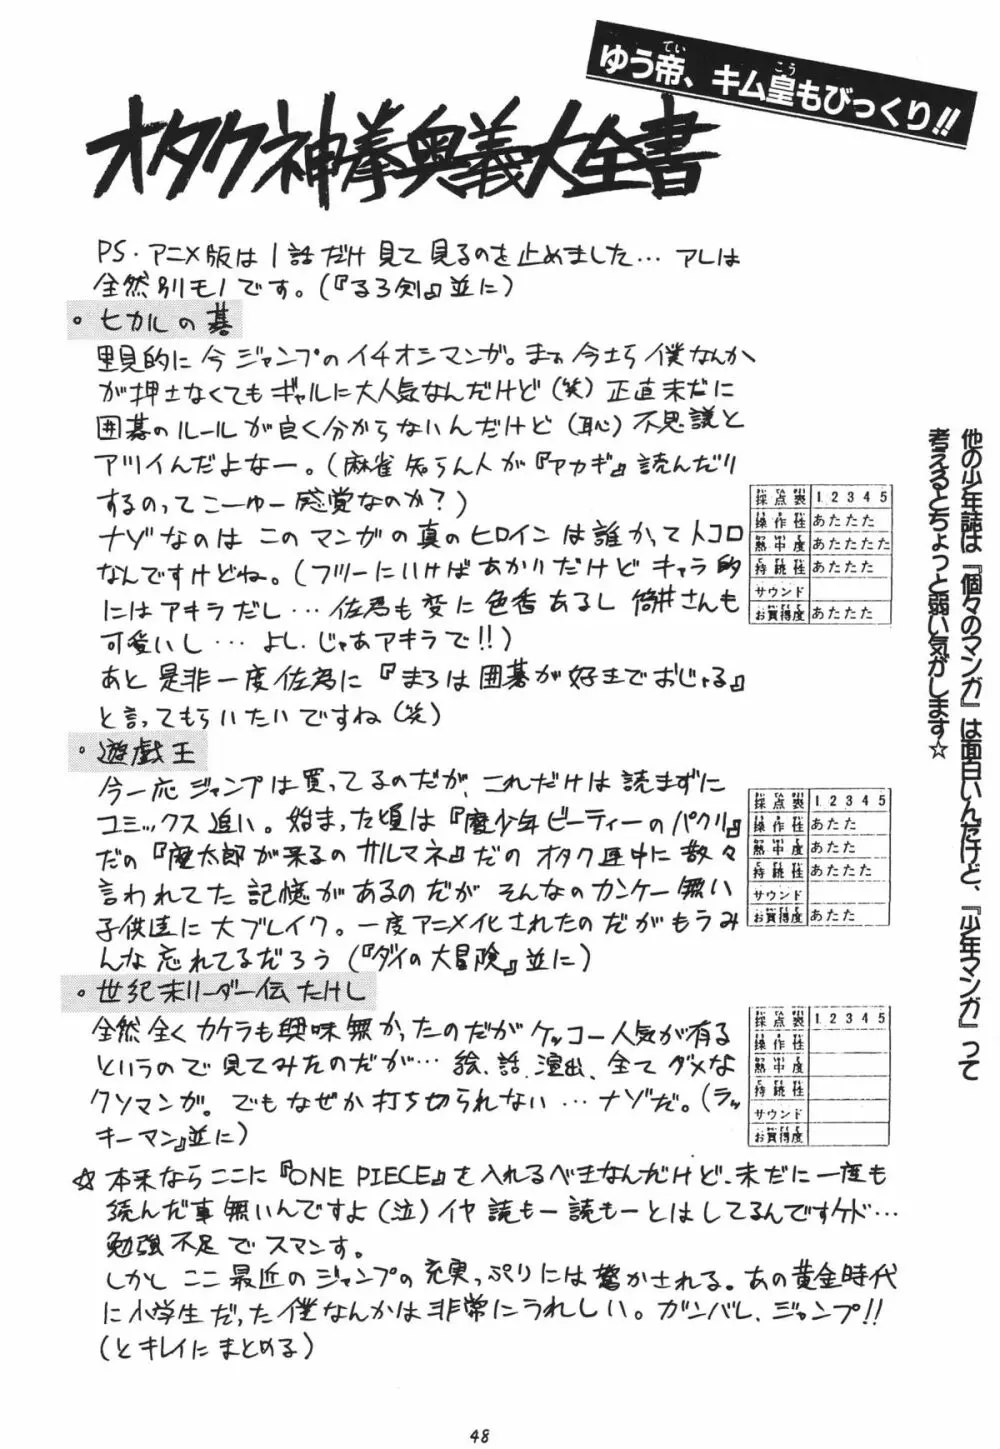 ゆう帝、キム皇もびっくり!!
てい
こう
オタク神拳奥義大全書
PS・アニメ版は1話だけ見て見るのを止めました…アレは
全然別モノです。(『るろ剣』並に)
。ヒカルの碁
里見的に今ジャンプのイチオシマンガ。まぁ今さら僕なんか
が押さなくてもギャルに大人気なんだけど(笑)正直未だに
囲碁のルールが良く分からないんだけど(恥)不思議と
アツイんだよなー。(麻雀知らん人が『アカギ』読んだり
するのってこーゆー感覚なのか?)
ナゾなのはこのマンガの真のヒロインは誰かってトコロ
なんですけどね。(フツーにいけばあかりだけどキャラ的
にはアキラだし…佐為も変に色香あるし筒井さんも
可愛いし…よし、じゃあアキラで!!)
あと是非一度佐為に『まろは囲碁が好きでおじゃる』
と言ってもらいたいですね(笑)
採点表 1 2 3 4 5
操作性 あたたた
熱中度 あたたたた
持続性 あたたた
サウンド
お買得度 あたたた
。遊戯王
今一応ジャンプは買ってるのだが、これだけは読まずに
コミックス追い。始まった頃は『魔少年ビーティーのパクリ』
だの『魔太郎が来るのサルマネ』だのオタク連中に散々
言われてた記憶があるのだがそんなのカンケー無い
子供達に大ブレイク。一度アニメ化されたのだがもうみ
んな忘れてるだろう(『ダイの大冒険』並に)
採点表 1 2 3 4 5
操作性 あたた
熱中度 あたた
持続性 あたたた
サウンド
お買得度 あたた
。世紀末リーダー伝たけし
全然全くカケラも興味無かったのだがケッコー人気が有る
というので見てみたのだが…絵、話、演出、全てダメな
クソマンガ。でもなぜか打ち切られない…ナゾだ。(ラッ
キーマン』並に)
採点表 1 2 3 4 5
操作性
熱中度
持続性
サウンド
お買得度
☆本来ならここに『ONE PIECE』を入れるべきなんだけど、未だに一度も
読んだ事無いんですよ(泣)イヤ読もー読もーとはしてるんですケド…
勉強不足でスマンす。
しかしここ最近のジャンプの充実っぷりには驚かされる。あの黄金時代
に小学生だった僕なんかは非常にうれしい。ガンバレ、ジャンプ!!
(とキレイにまとめる)
他の少年誌は『個々のマンガ』は面白いんだけど、『少年マンガ』って
考えるとちょっと弱い気がします☆
48